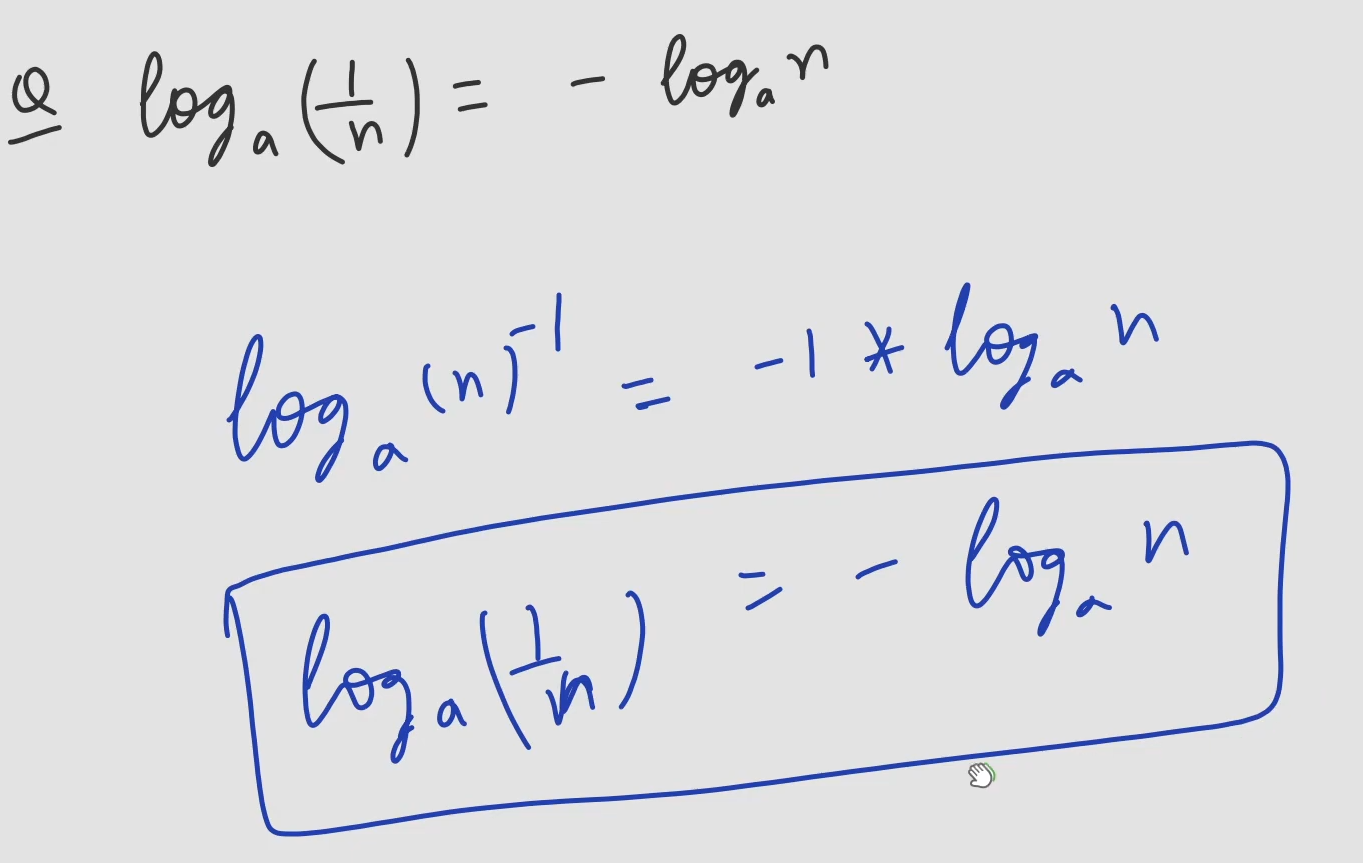 Q log_a (1/n) = - log_a n
log_a (n)^-1 = -1 * log_a n
log_a (1/n) = - log_a n